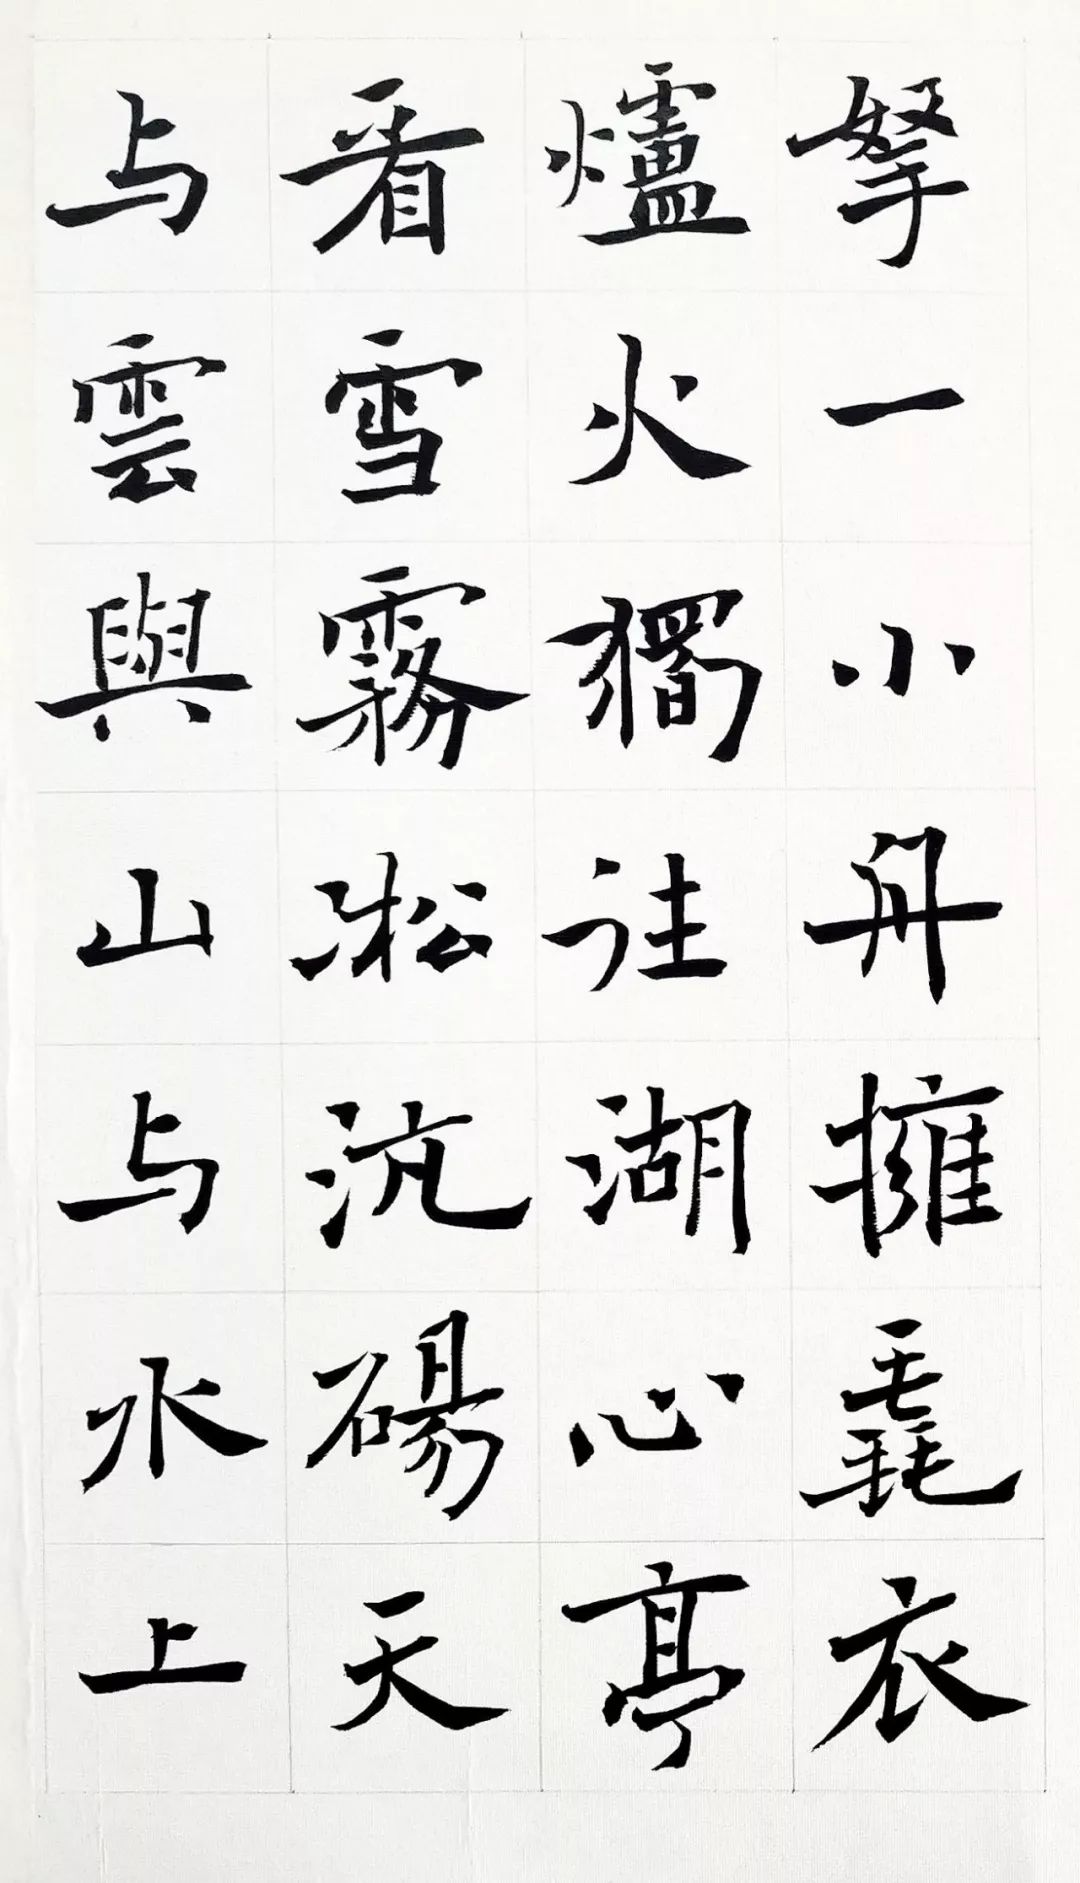 拏一小舟擁毳衣
爐火獨往湖心亭
看雪霧凇沆碭天
与雲與山与水上